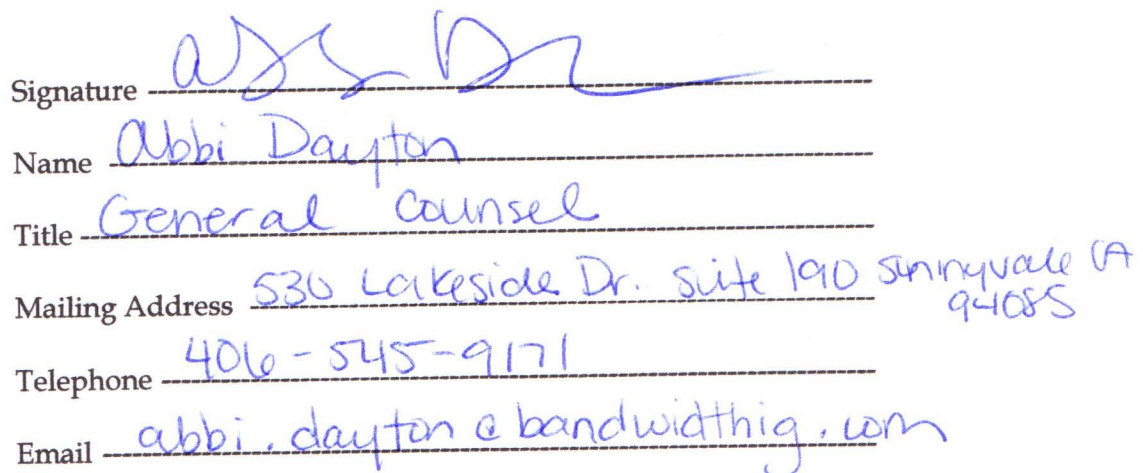 Signature
Name Abbi Dayton
Title General Counsel
Mailing Address 530 Lakeside Dr. Suite 190 Sunnyvale CA
94085
Telephone 406-545-9171
Email abbi.dayton@bandwidthig.com